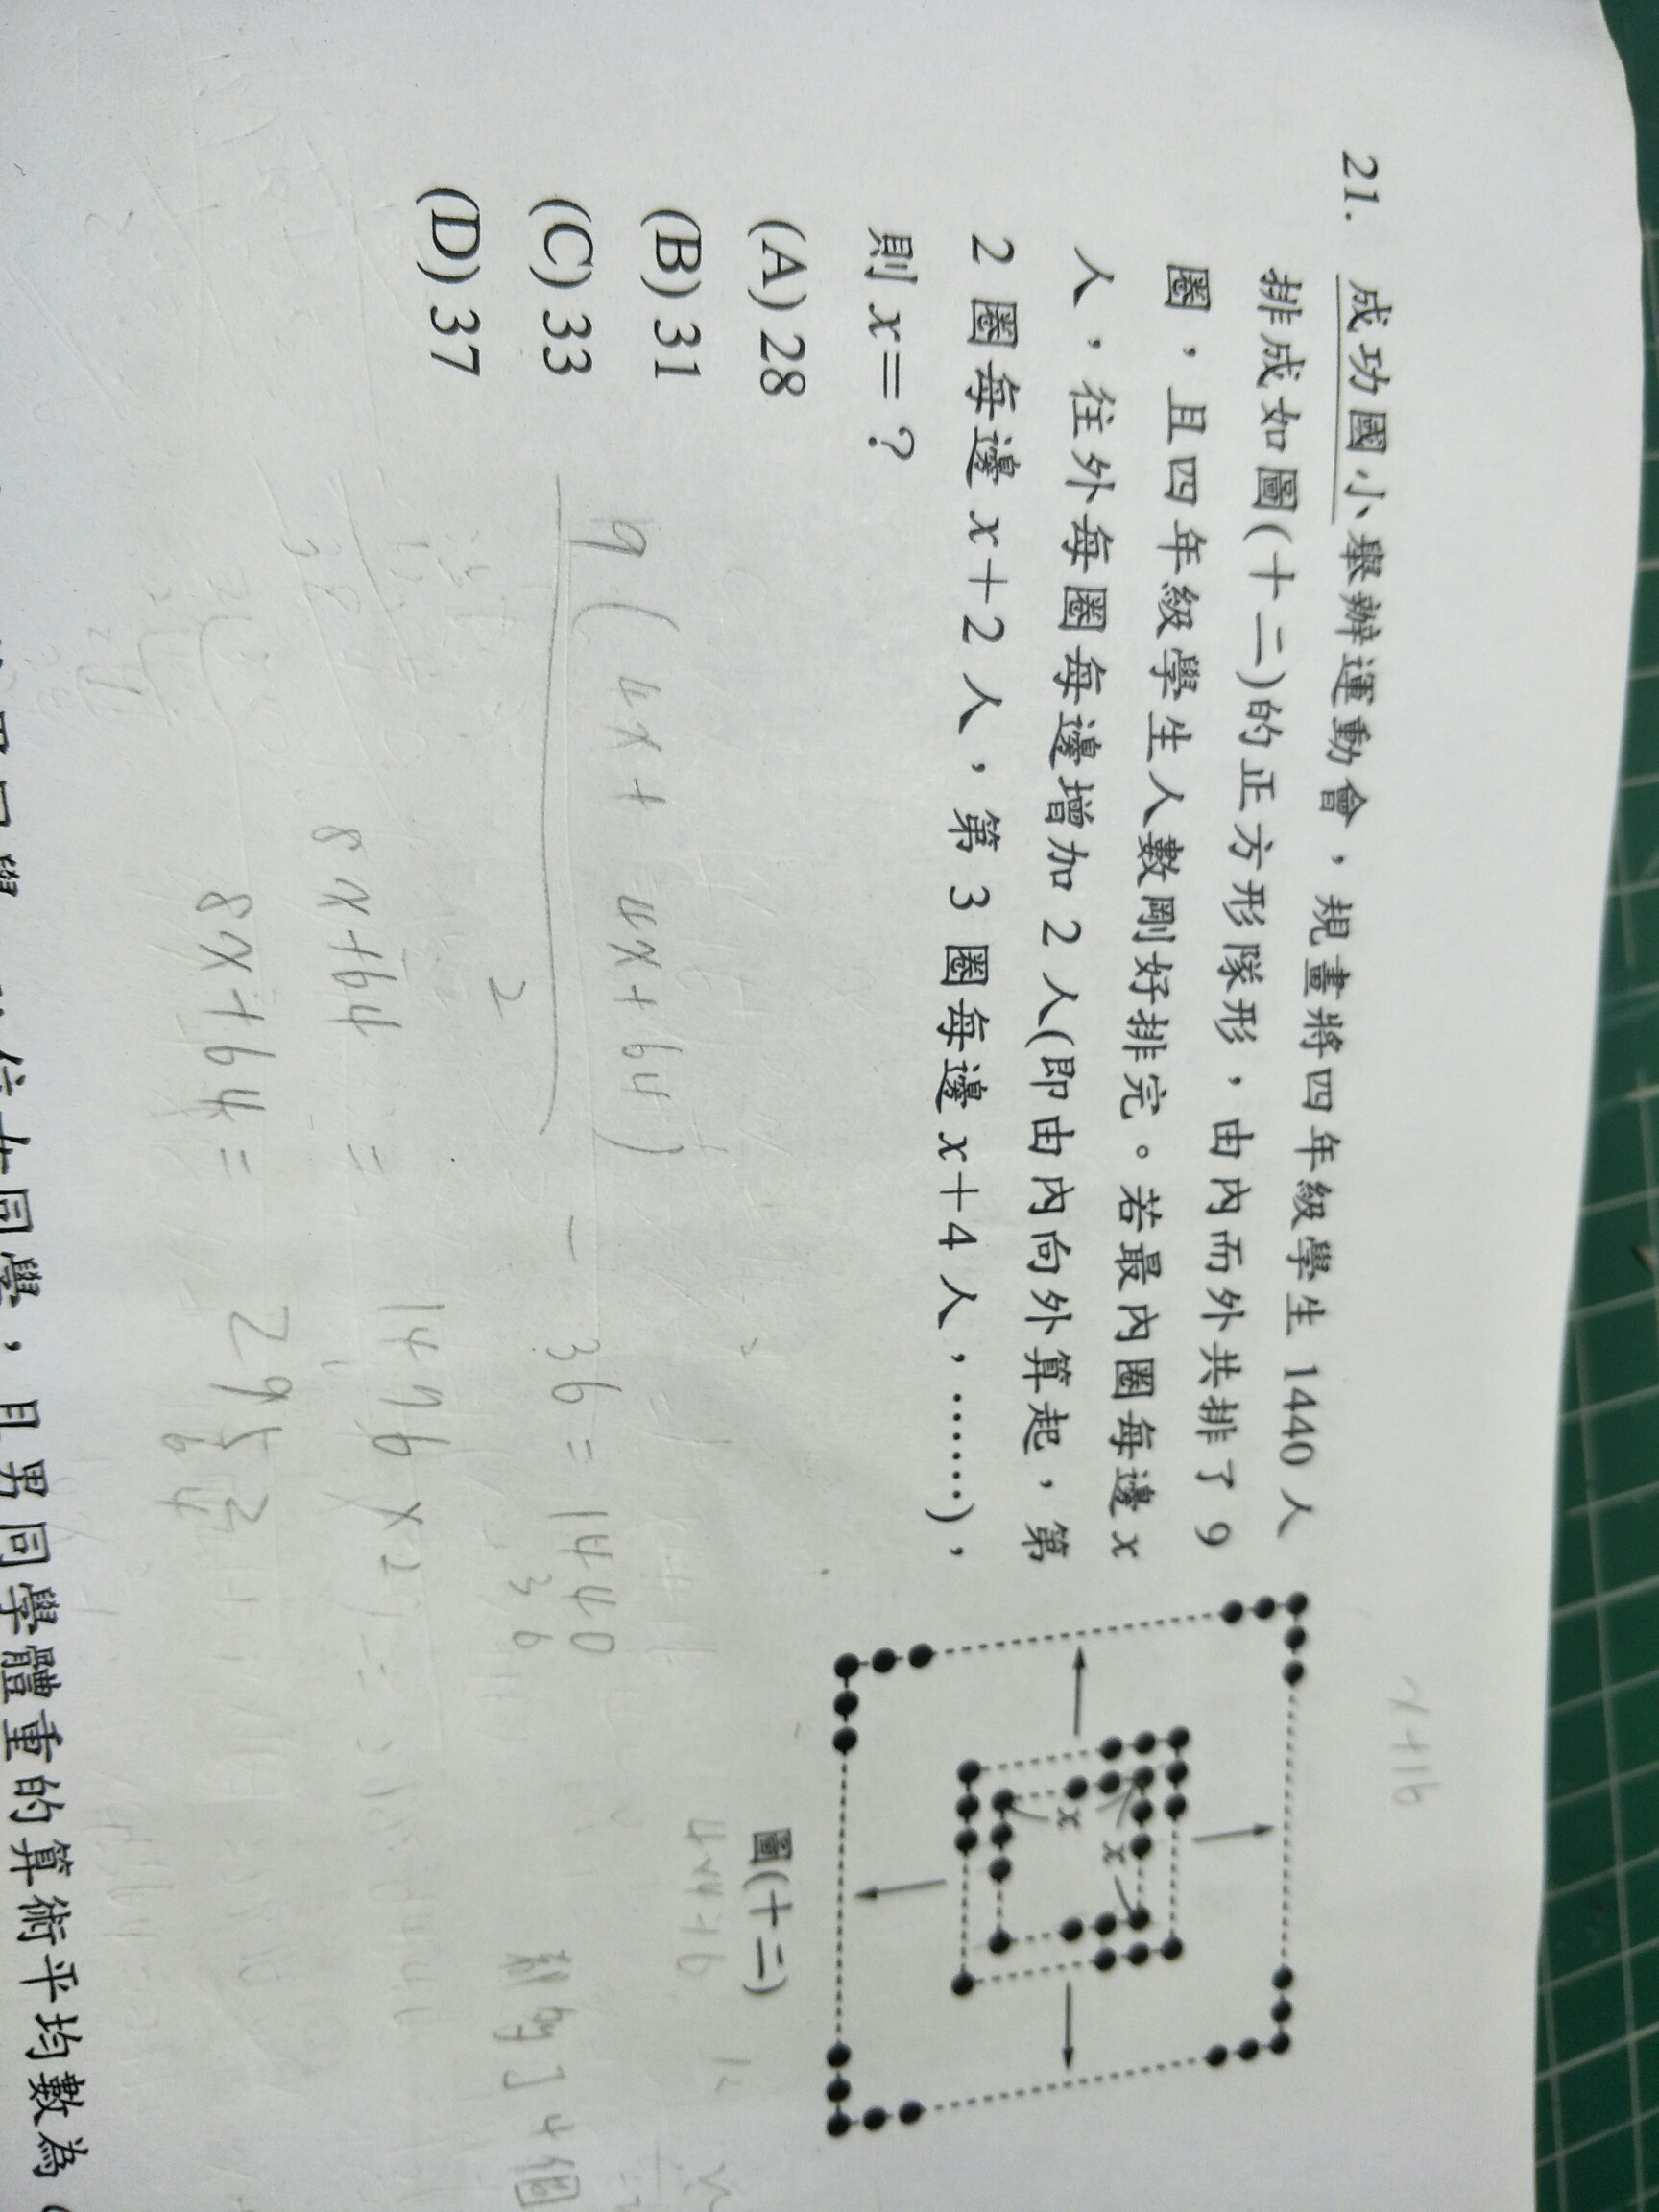 21. 成功國小舉辦運動會，規畫將四年級學生 1440 人
排成如圖(十二)的正方形隊形，由內而外共排了 9
圈，且四年級學生人數剛好排完。若最內圈每邊 x
人，往外每圈每邊增加 2 人(即由內向外算起，第
2 圈每邊 x＋2 人，第 3 圈每邊 x＋4 人，……)，
則 x＝？
(A) 28
(B) 31
(C) 33
(D) 37
x
x
圖(十二)
x+16
9(4x+4x+64)
2
－36=1440
36
8x+64 = 1496x2
8x+64=